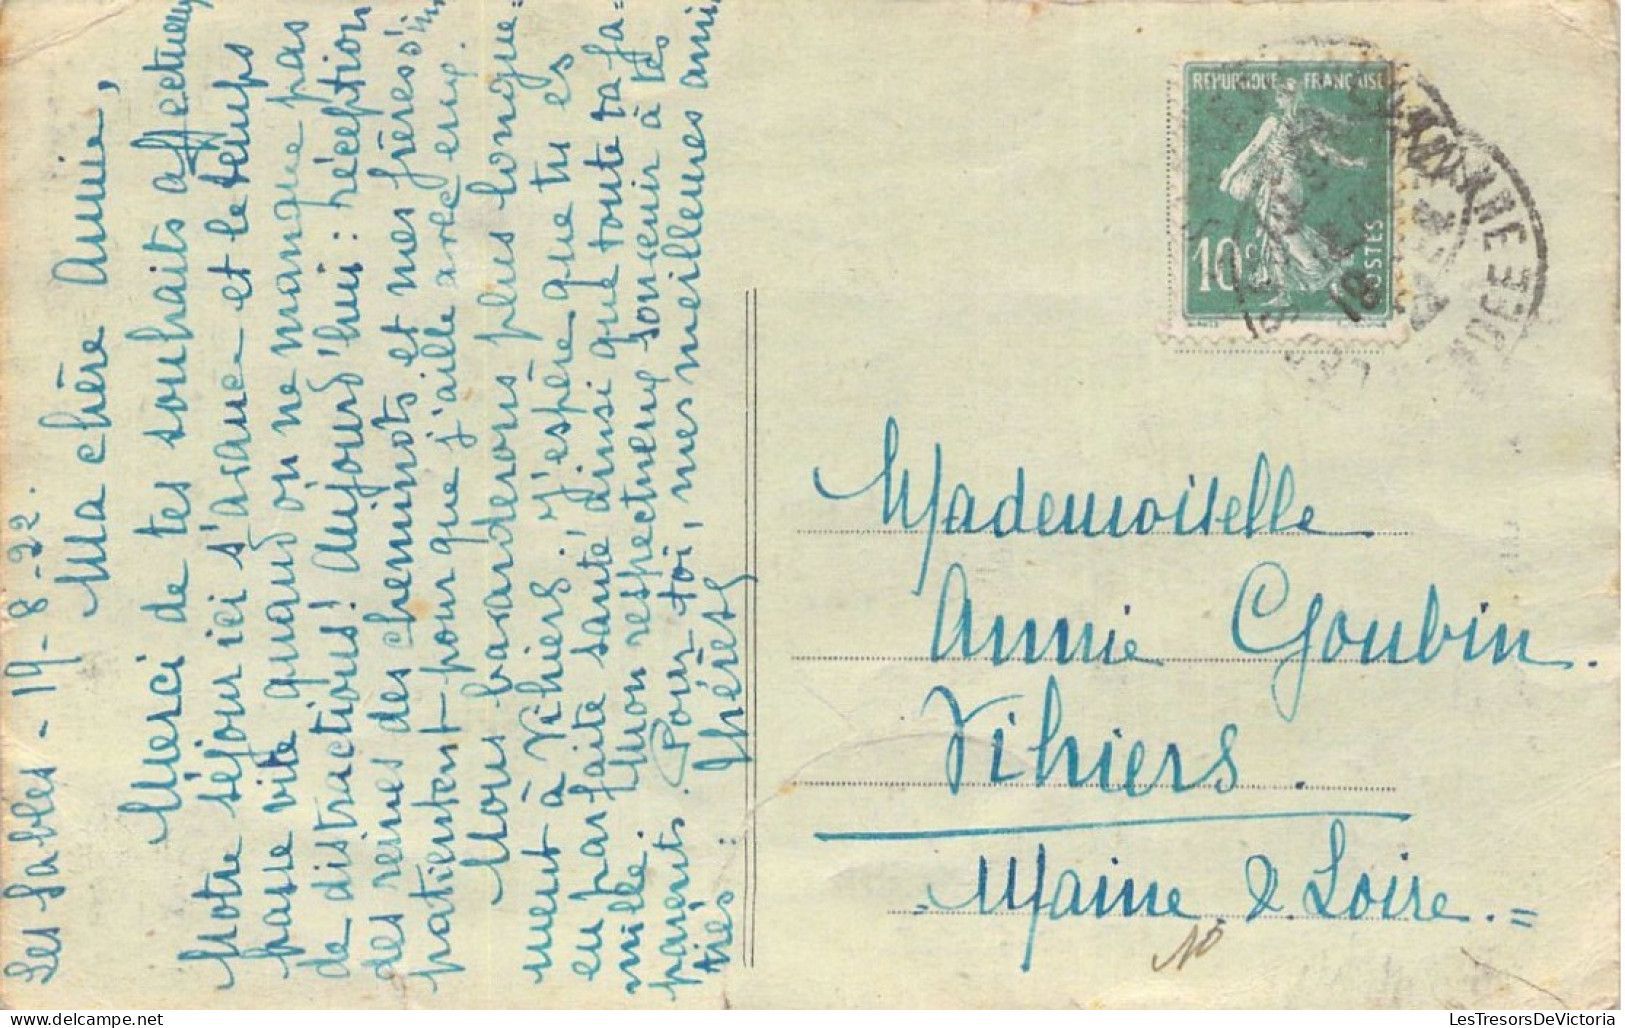 Les Sables - 19-8-22.
Ma chère Annie,
Merci de tes souhaits affectueux,
Notre séjour ici s'avance et le temps
passe vite quand on ne manque pas
de distractions! Aujourd'hui: réception
des reines des cheminots et mes frères s'im
patientent pour que j'aille avec eux.
Nous bavarderons plus longue=
ment à Vihiers. J'espère que tu es
en parfaite santé ainsi que toute ta fa=
mille. Mon respectueux souvenir à tes
parents. Pour toi, mes meilleures ami
tiés: Thérèse
REPUBLIQUE FRANÇAISE
10c
POSTES
Mademoiselle
Annie Goubin.
Vihiers.
Maine & Loire.=
10
LesTresorsDeVictoria.com